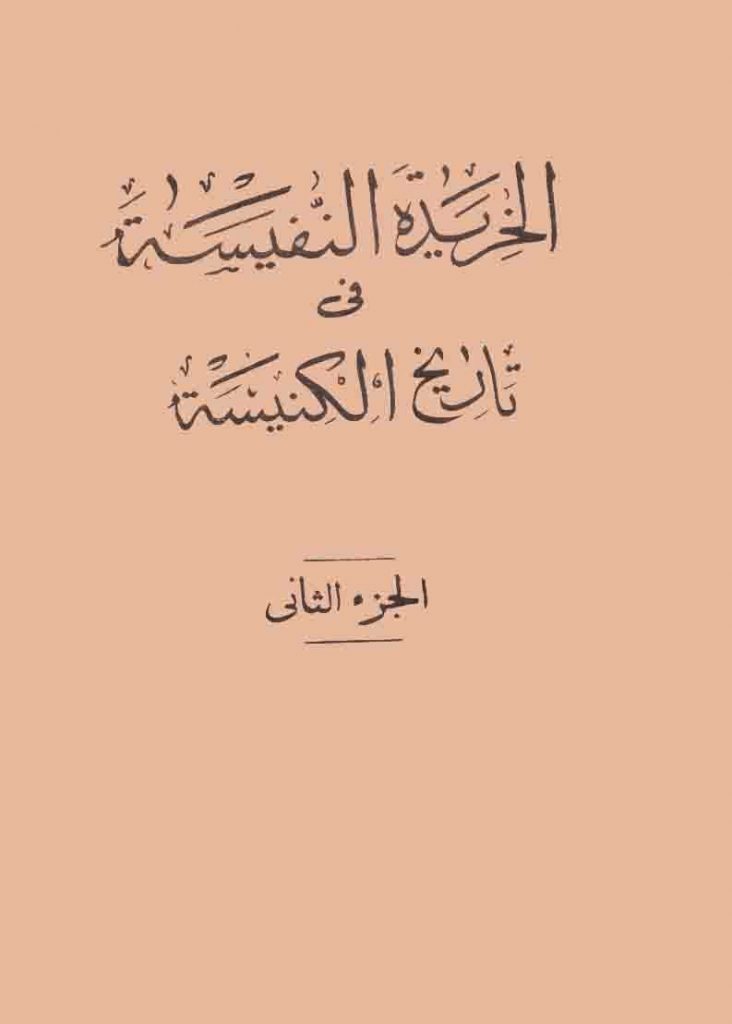 الخريدة النفيسة
فى
تاريخ الكنيسة
الجزء الثانى